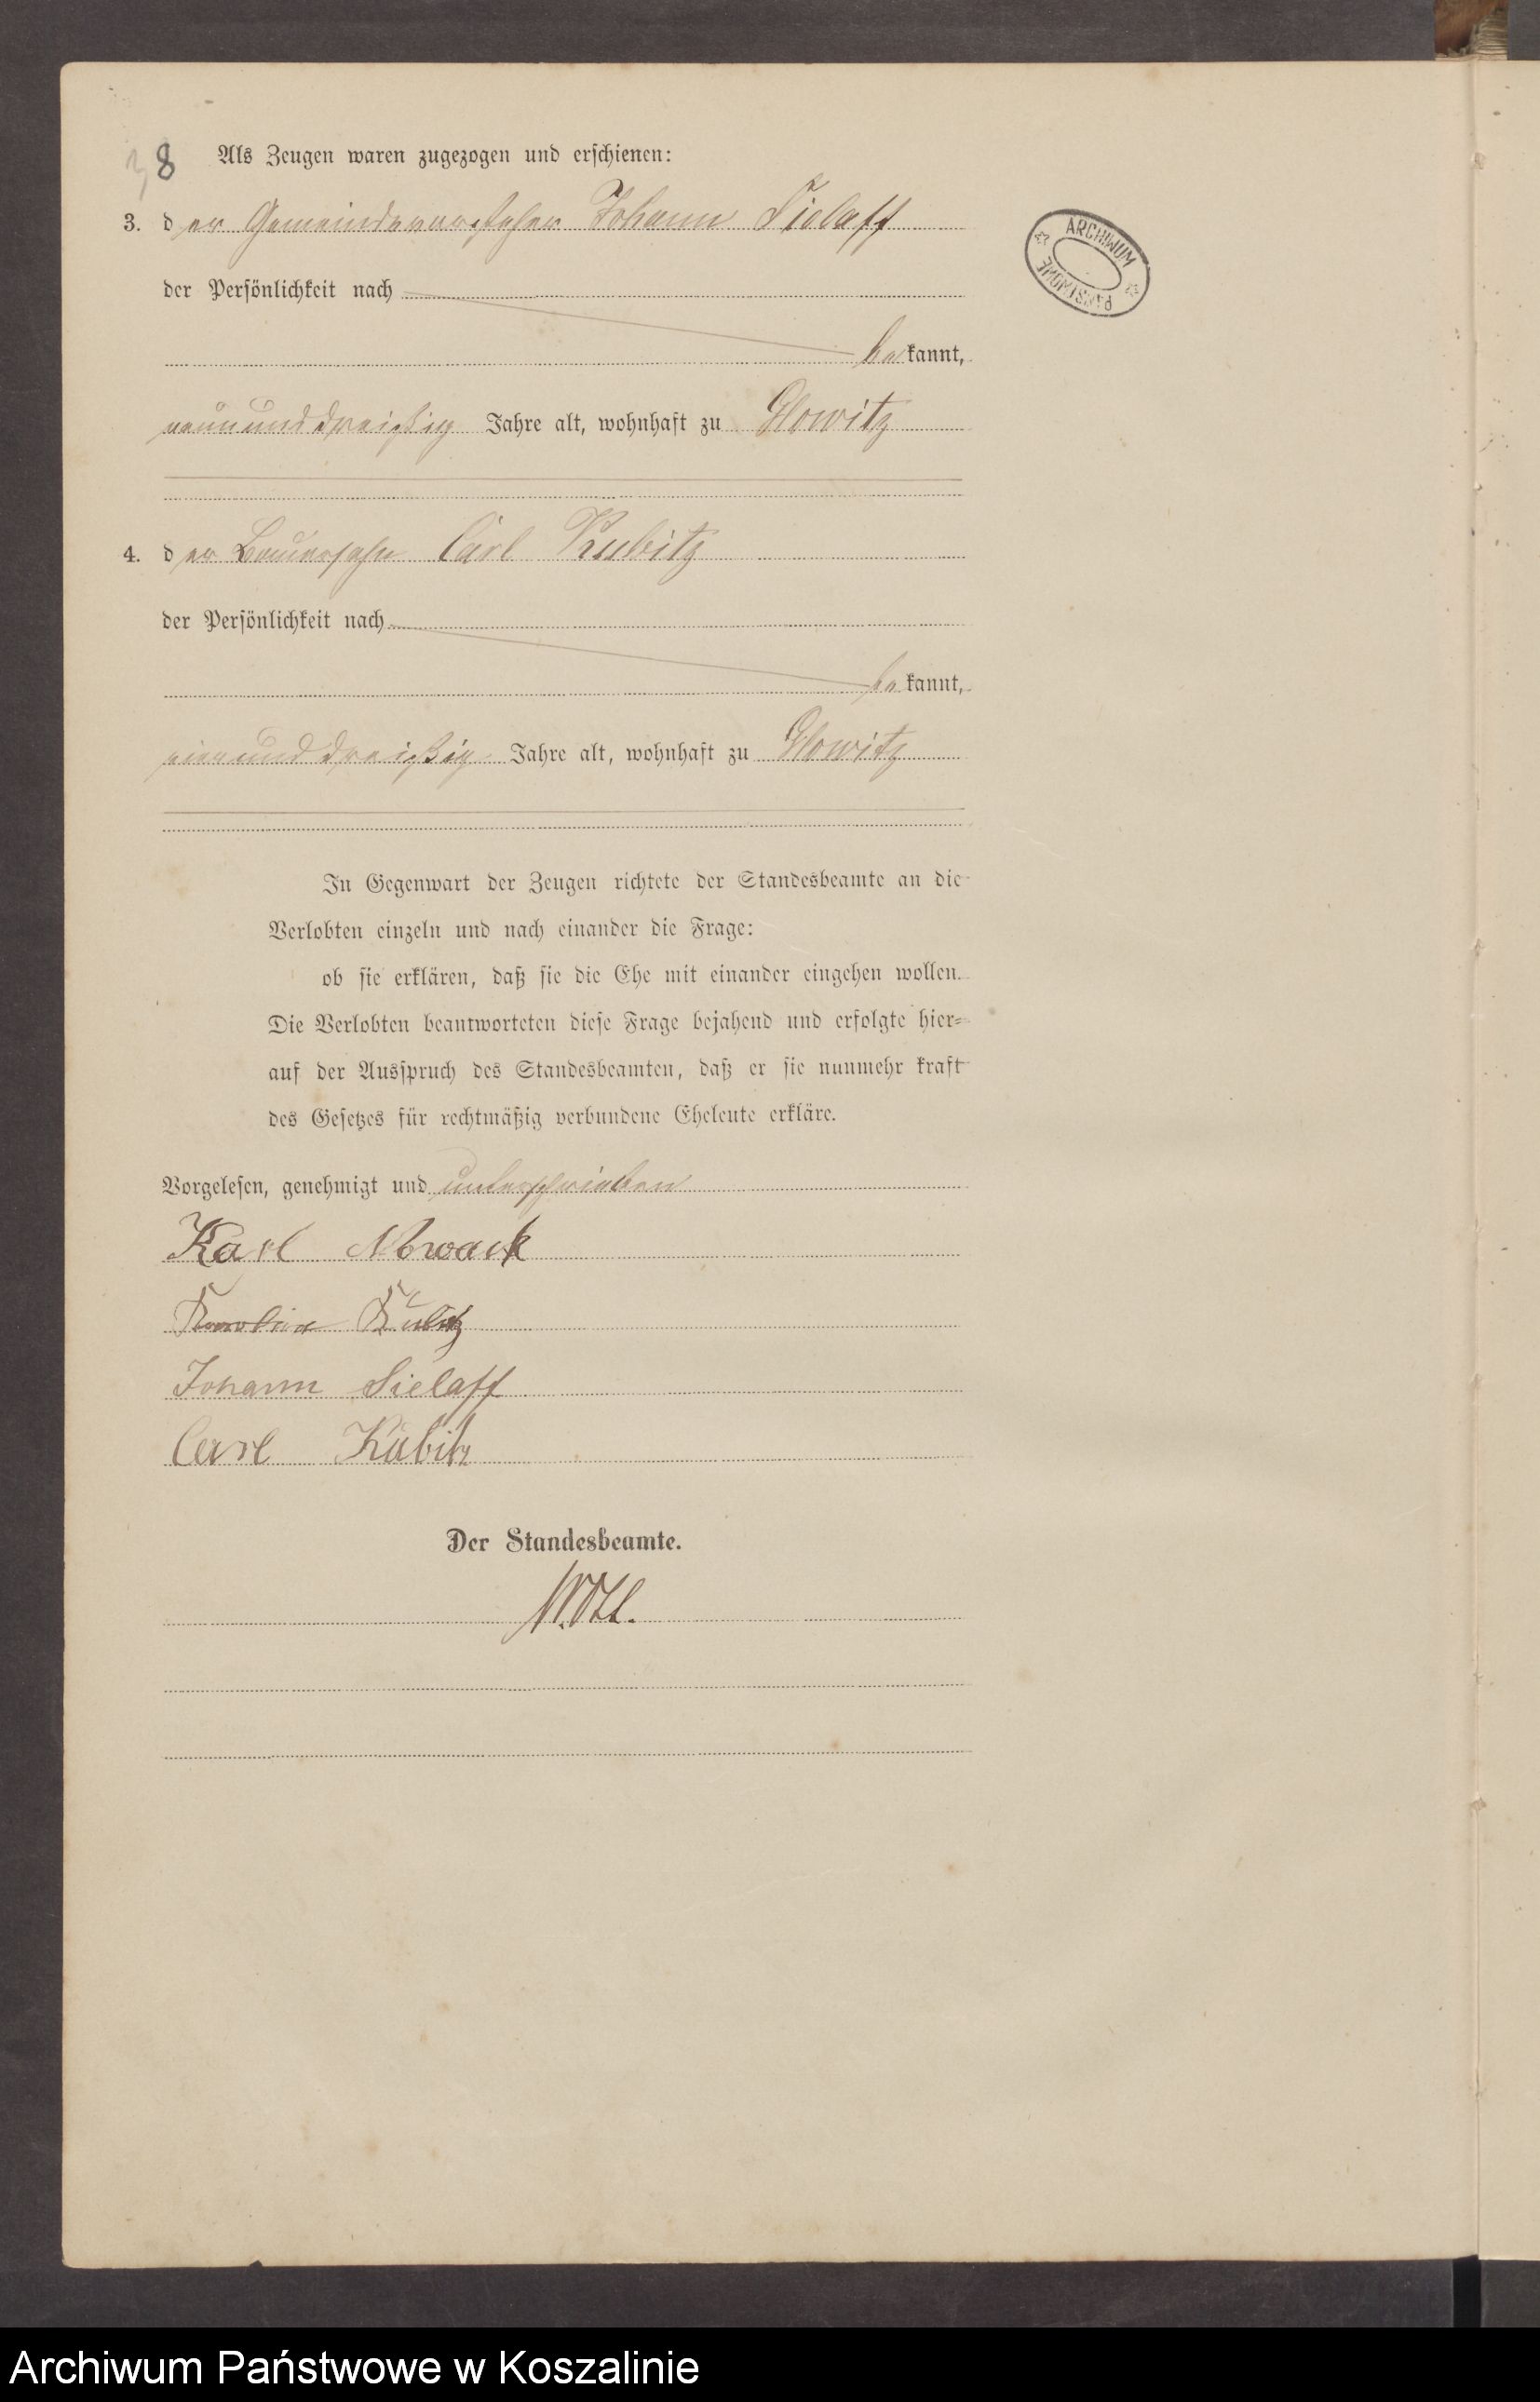 8 Als Zeugen waren zugezogen und erschienen:
3. der Gemeindevorsteher Johann Sielaff
der Persönlichkeit nach
bekannt,
neununddreißig Jahre alt, wohnhaft zu Glowitz
4. der Bauersohn Carl Kubitz
der Persönlichkeit nach
bekannt,
vierunddreißig Jahre alt, wohnhaft zu Glowitz
In Gegenwart der Zeugen richtete der Standesbeamte an die
Verlobten einzeln und nach einander die Frage:
ob sie erklären, daß sie die Ehe mit einander eingehen wollen.
Die Verlobten beantworteten diese Frage bejahend und erfolgte hier-
auf der Ausspruch des Standesbeamten, daß er sie nunmehr kraft
des Gesetzes für rechtmäßig verbundene Eheleute erkläre.
Vorgelesen, genehmigt und unterschrieben
Karl Nowack
Karoline Kubitz
Johann Sielaff
Carl Kubitz
Der Standesbeamte.
ARCHIWUM PAŃSTWOWE
Archiwum Państwowe w Koszalinie